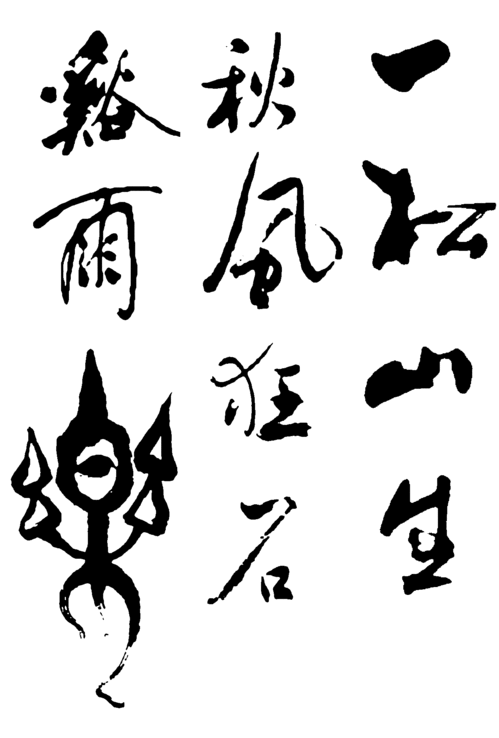 一松山生
秋風狂石
谿雨樂